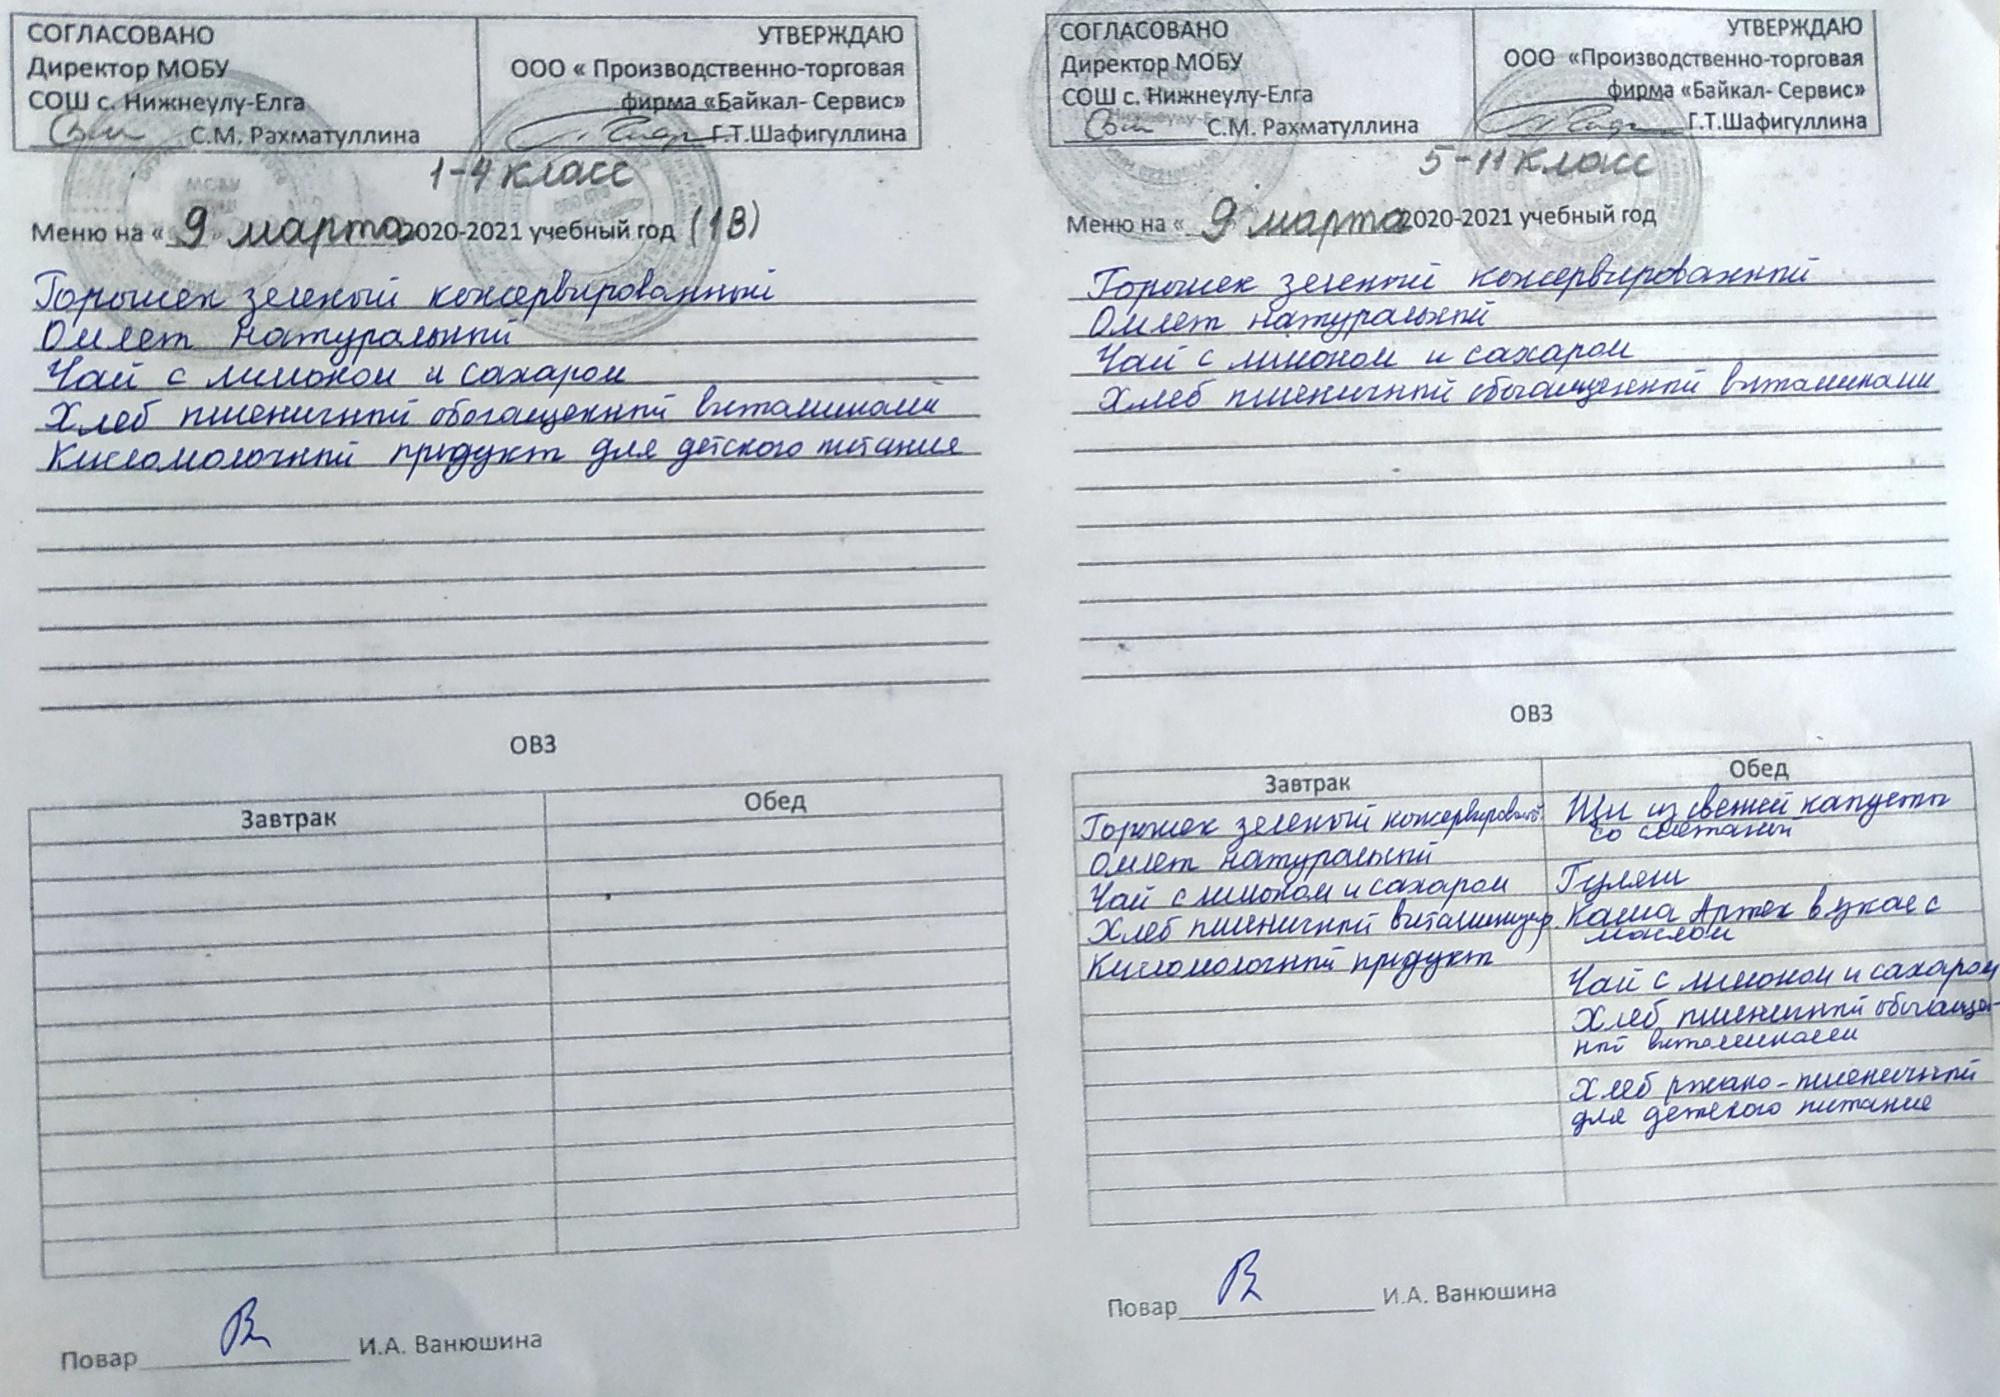 СОГЛАСОВАНО
Директор МОБУ
СОШ с. Нижнеулу-Елга
С.М. Рахматуллина
УТВЕРЖДАЮ
ООО « Производственно-торговая
фирма «Байкал- Сервис»
Г.Т.Шафигуллина
1-4 класс
Меню на « 9 марта 2020-2021 учебный год (1В)
Горошек зеленый консервированный
Омлет натуральный
Чай с лимоном и сахаром
Хлеб пшеничный обогащенный витаминами
Кисломолочный продукт для детского питания
ОВЗ
Завтрак Обед
Повар И.А. Ванюшина
СОГЛАСОВАНО
Директор МОБУ
СОШ с. Нижнеулу-Елга
С.М. Рахматуллина
УТВЕРЖДАЮ
ООО «Производственно-торговая
фирма «Байкал- Сервис»
Г.Т.Шафигуллина
5-11 класс
Меню на « 9 марта 2020-2021 учебный год
Горошек зеленый консервированный
Омлет натуральный
Чай с лимоном и сахаром
Хлеб пшеничный обогащенный витаминами
ОВЗ
Завтрак
Горошек зеленый
Омлет натуральный
Чай с лимоном и сахаром
Хлеб пшеничный витаминизир.
Кисломолочный продукт
Обед
Щи из свежей капусты
со сметаной
Гуляш
Каша Артек вязкая с
маслом
Чай с лимоном и сахаром
Хлеб пшеничный обогащен-
ный витаминами
Хлеб ржано-пшеничный
для детского питание
Повар И.А. Ванюшина